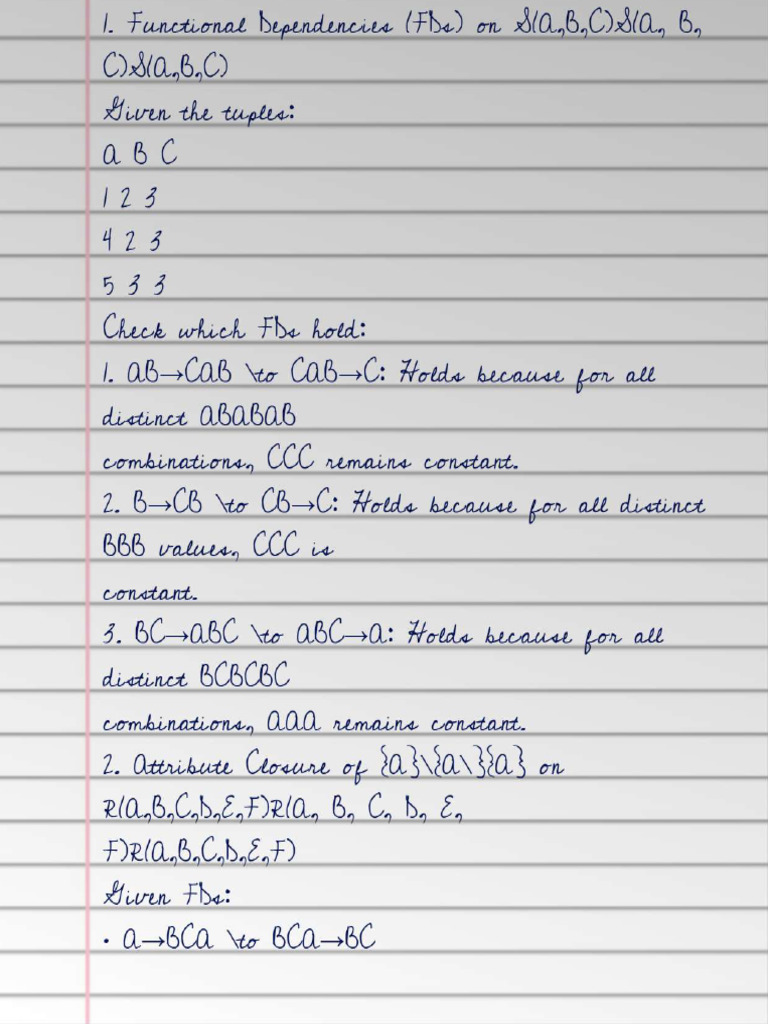 1. Functional Dependencies (FDs) on S(A,B,C)S(A, B,
C)S(A,B,C)
Given the tuples:
A B C
1 2 3
4 2 3
5 3 3
Check which FDs hold:
1. AB→CAB \to CAB→C: Holds because for all
distinct ABABAB
combinations, CCC remains constant.
2. B→CB \to CB→C: Holds because for all distinct
BBB values, CCC is
constant.
3. BC→ABC \to ABC→A: Holds because for all
distinct BCBCBC
combinations, AAA remains constant.
2. Attribute Closure of {A}\{A\}{A} on
R(A,B,C,D,E,F)R(A, B, C, D, E,
F)R(A,B,C,D,E,F)
Given FDs:
• A→BCA \to BCA→BC